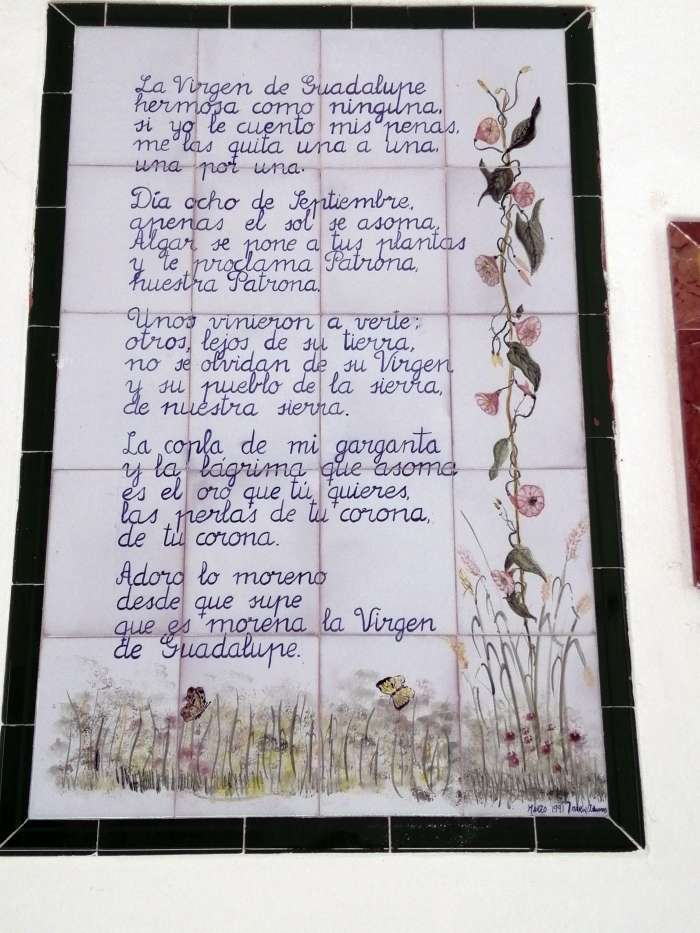 La Virgen de Guadalupe
hermosa como ninguna,
si yo le cuento mis penas,
me las quita una a una,
una por una.
Día ocho de Septiembre,
apenas el sol se asoma,
Algar se pone a tus plantas
y te proclama Patrona,
nuestra Patrona.
Unos vinieron a verte;
otros, lejos de su tierra,
no se olvidan de su Virgen
y su pueblo de la sierra,
de nuestra sierra.
La copla de mi garganta
y la lágrima que asoma
es el oro que tú quieres,
las perlas de tu corona,
de tu corona.
Adoro lo moreno
desde que supe
que es morena la Virgen
de Guadalupe.
Marzo 1991